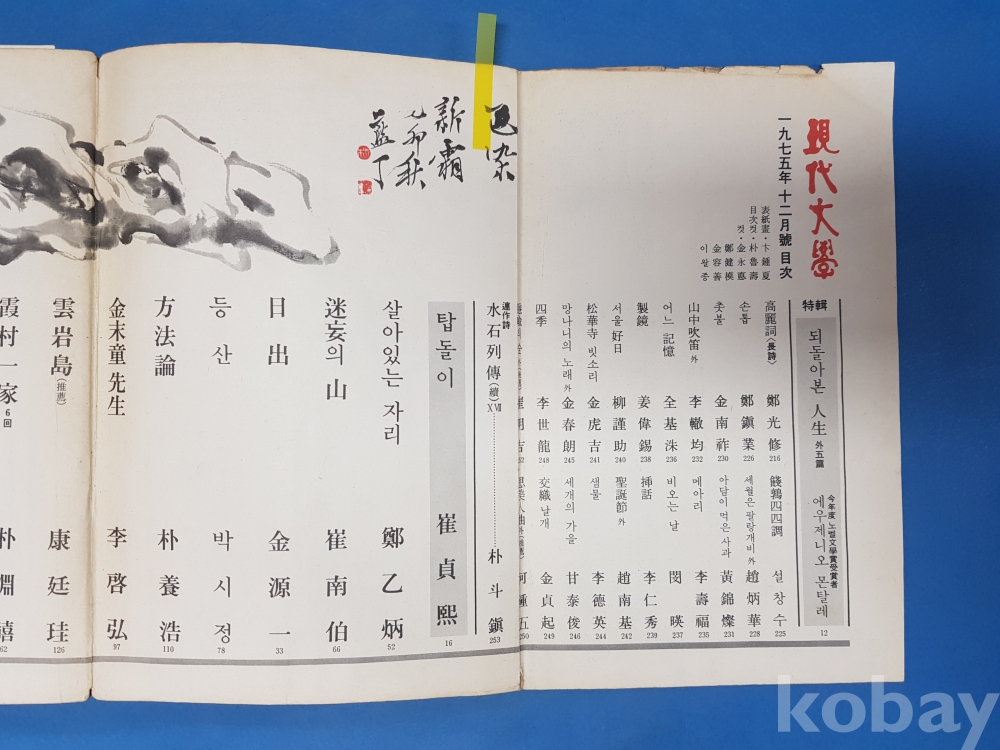 現代文學
一九七五年 十二月號 目次
表紙畫・卞鍾夏
目次컷・朴魯壽
컷・金永悳
鄭健模
金容善
이왈종
特輯
되돌아본 人生 外五篇
今年度 노벨文學賞受賞者
에우제니오 몬탈레
12
高麗詞(長詩) 鄭光修 216
餞鶉四四調 설창수 225
손톱 鄭鎭業 226
세월은 팔랑개비 外 趙炳華 228
촛불 金南祚 230
아담이 먹은 사과 黃錦燦 231
山中吹笛 外 李轍均 232
메아리 李壽福 235
어느 記憶 全基洙 236
비오는 날 閔暎 237
製鏡 姜偉錫 238
揷話 李仁秀 239
서울 好日 柳謹助 240
聖誕節 外 趙南基 242
松華寺 빗소리 金虎吉 241
샘물 李德英 244
망나니의 노래 外 金春朗 245
세개의 가을 甘泰俊 246
四季 李世龍 248
交織 날개 金貞起 249
250
連作詩
水石列傳(續) XⅦ 朴斗鎭 253
탑돌이 崔貞熙 16
살아있는 자리 鄭乙炳 52
迷妄의 山 崔南伯 66
日出 金源一 33
등산 박시정 78
方法論 朴養浩 110
金末童 先生 李啓弘 97
雲岩島(推薦) 康廷珪 126
霞村一家 6回 朴淵禧 62
新霜
乙卯秋
藍丁
kobay